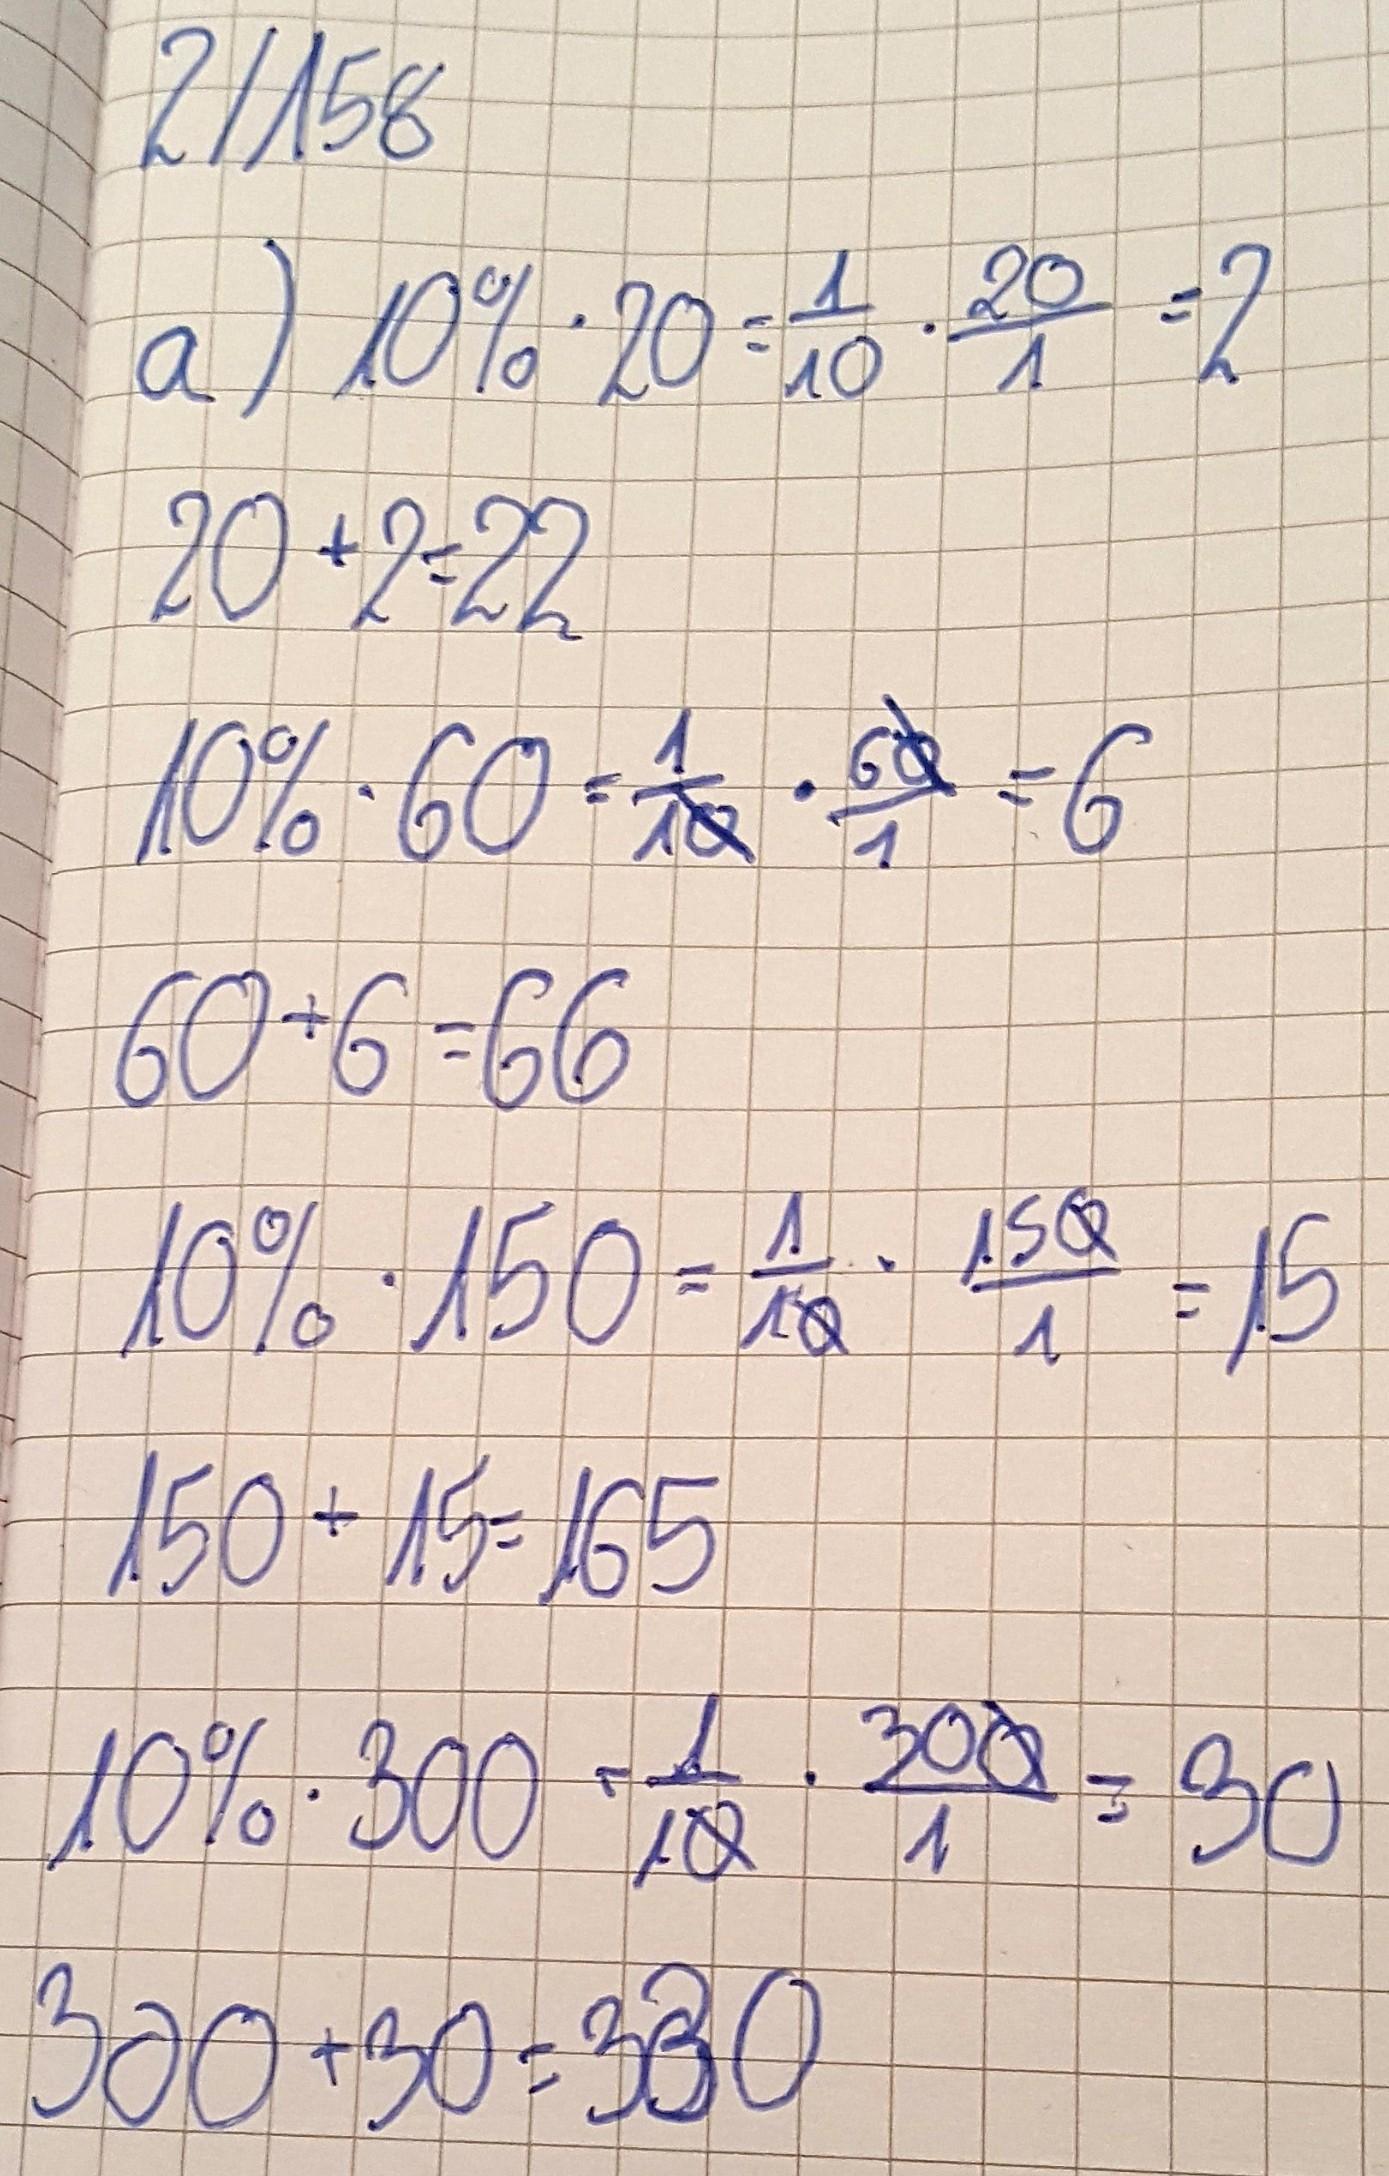 2/158
a) 10% · 20 = 1/10 · 20/1 = 2
20 + 2 = 22
10% · 60 = 1/10 · 60/1 = 6
60 + 6 = 66
10% · 150 = 1/10 · 150/1 = 15
150 + 15 = 165
10% · 300 = 1/10 · 300/1 = 30
300 + 30 = 330